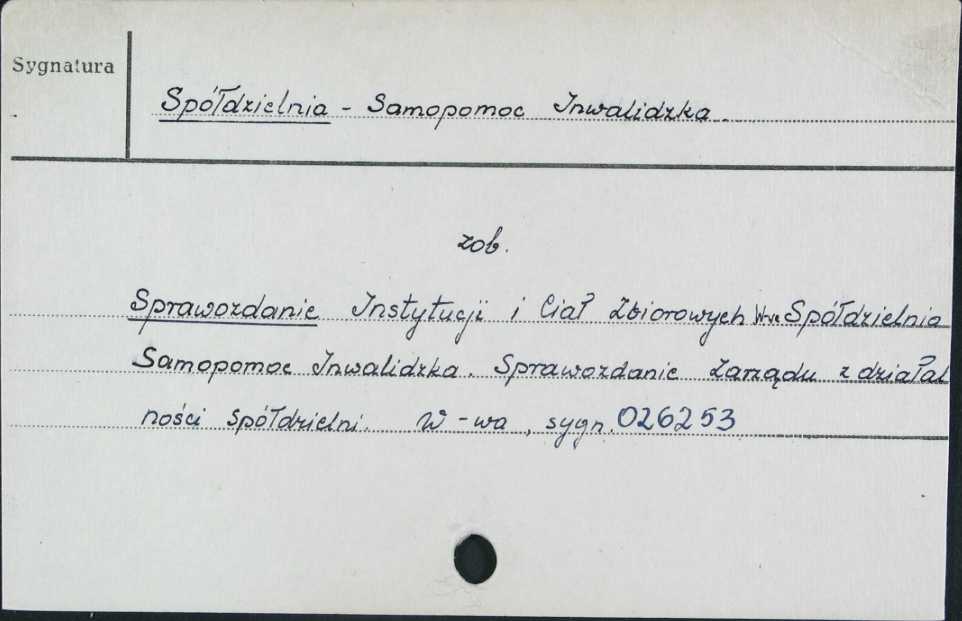 Sygnatura
Spółdzielnia - Samopomoc Inwalidzka.
zob.
Sprawozdanie Instytucji i Ciał Zbiorowych W-wa Spółdzielnia
Samopomoc Inwalidzka. Sprawozdanie Zarządu z działal
ności spółdzielni. W-wa, sygn. 026253